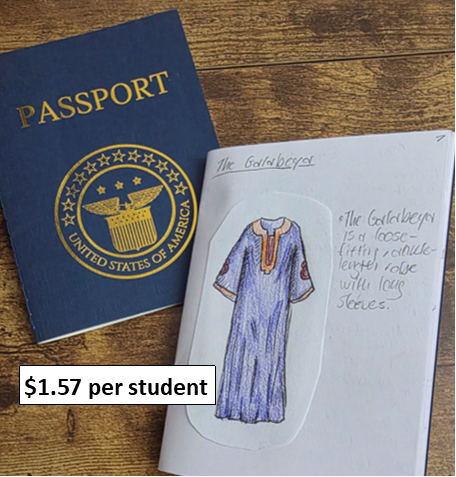 PASSPORT
UNITED STATES OF AMERICA
The
•The
is a loose-
fitting, ankle-
length robe
with long
sleeves.
$1.57 per student